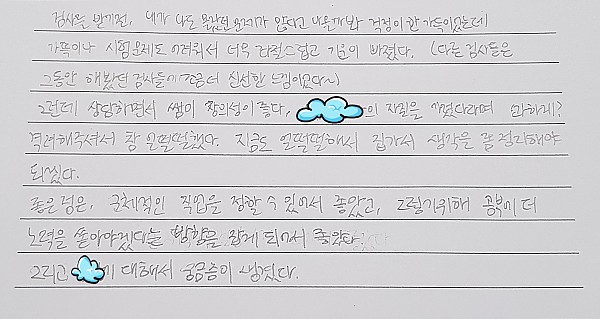 검사를 받기전, 내가 나도 몰랐던 문제가 있다고 나올까봐 걱정이 한가득이었는데
가뜩이나 시험문제도 어려워서 더욱 좌절스럽고 기운이 빠졌다. (다른 검사들은
그동안 해봤던 검사들이 조금더 신선한 느낌이였다~)
그런데 상담하면서 쌤이 창의성이 좋다, 의 자질을 가졌다라며 과하게?
격려해주셔서 참 얼떨떨했다. 지금도 얼떨떨해서 집가서 생각을 좀 정리해야
되겠다.
좋은 점은, 구체적인 직업을 정할 수 있어서 좋았고, 그렇기위해 공부에 더
노력을 쏟아야겠다는 방향을 잡게 되어서 좋았다.
그리고 에 대해서 궁금증이 생겼다.